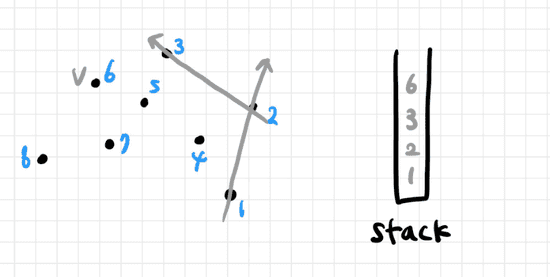 3
V 6
5
2
8
7
4
1
6
3
2
1
stack